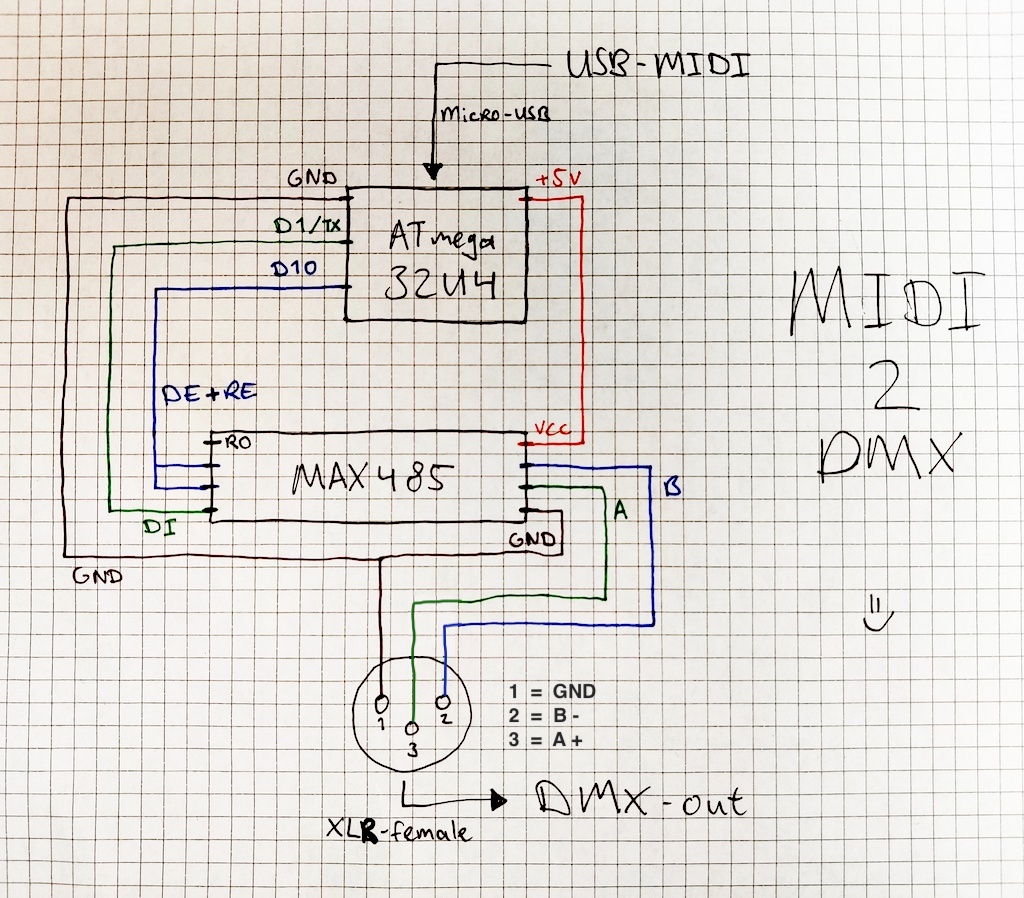 USB-MIDI
MICRO-USB
GND
+5V
D1/TX
ATmega
32U4
D10
MIDI
2
DMX
DE+RE
RO
VCC
MAX485
B
A
DI
GND
GND
1 = GND
2 = B -
3 = A +
1
2
3
DMX-out
XLR-female